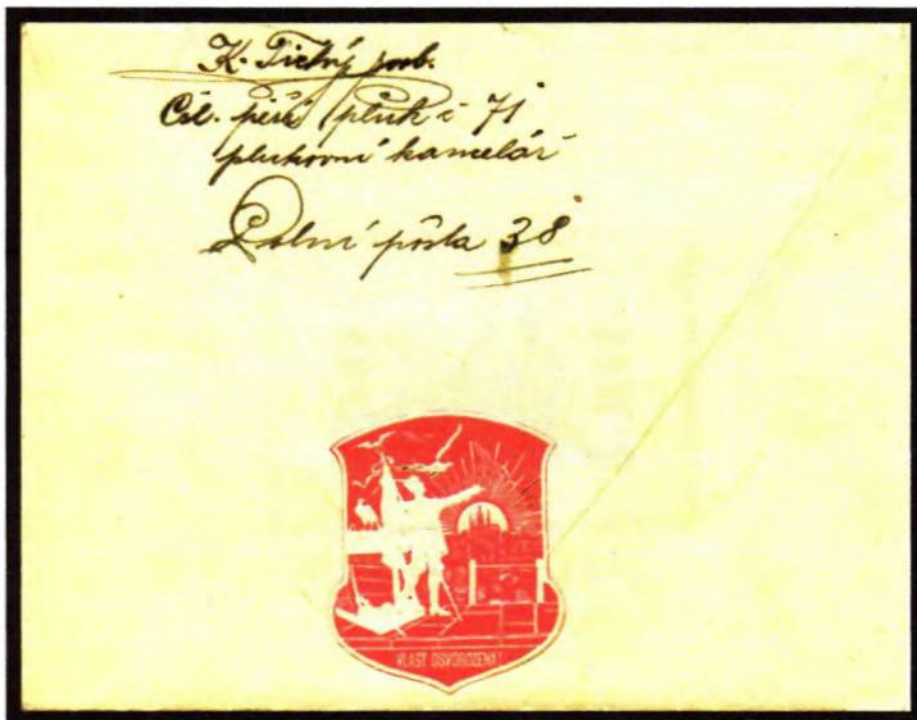 K. Tichý
Čsl. pěší pluk č 71
plukovní kancelář
Polní pošta 38
VLAST OSVOBOZENA!